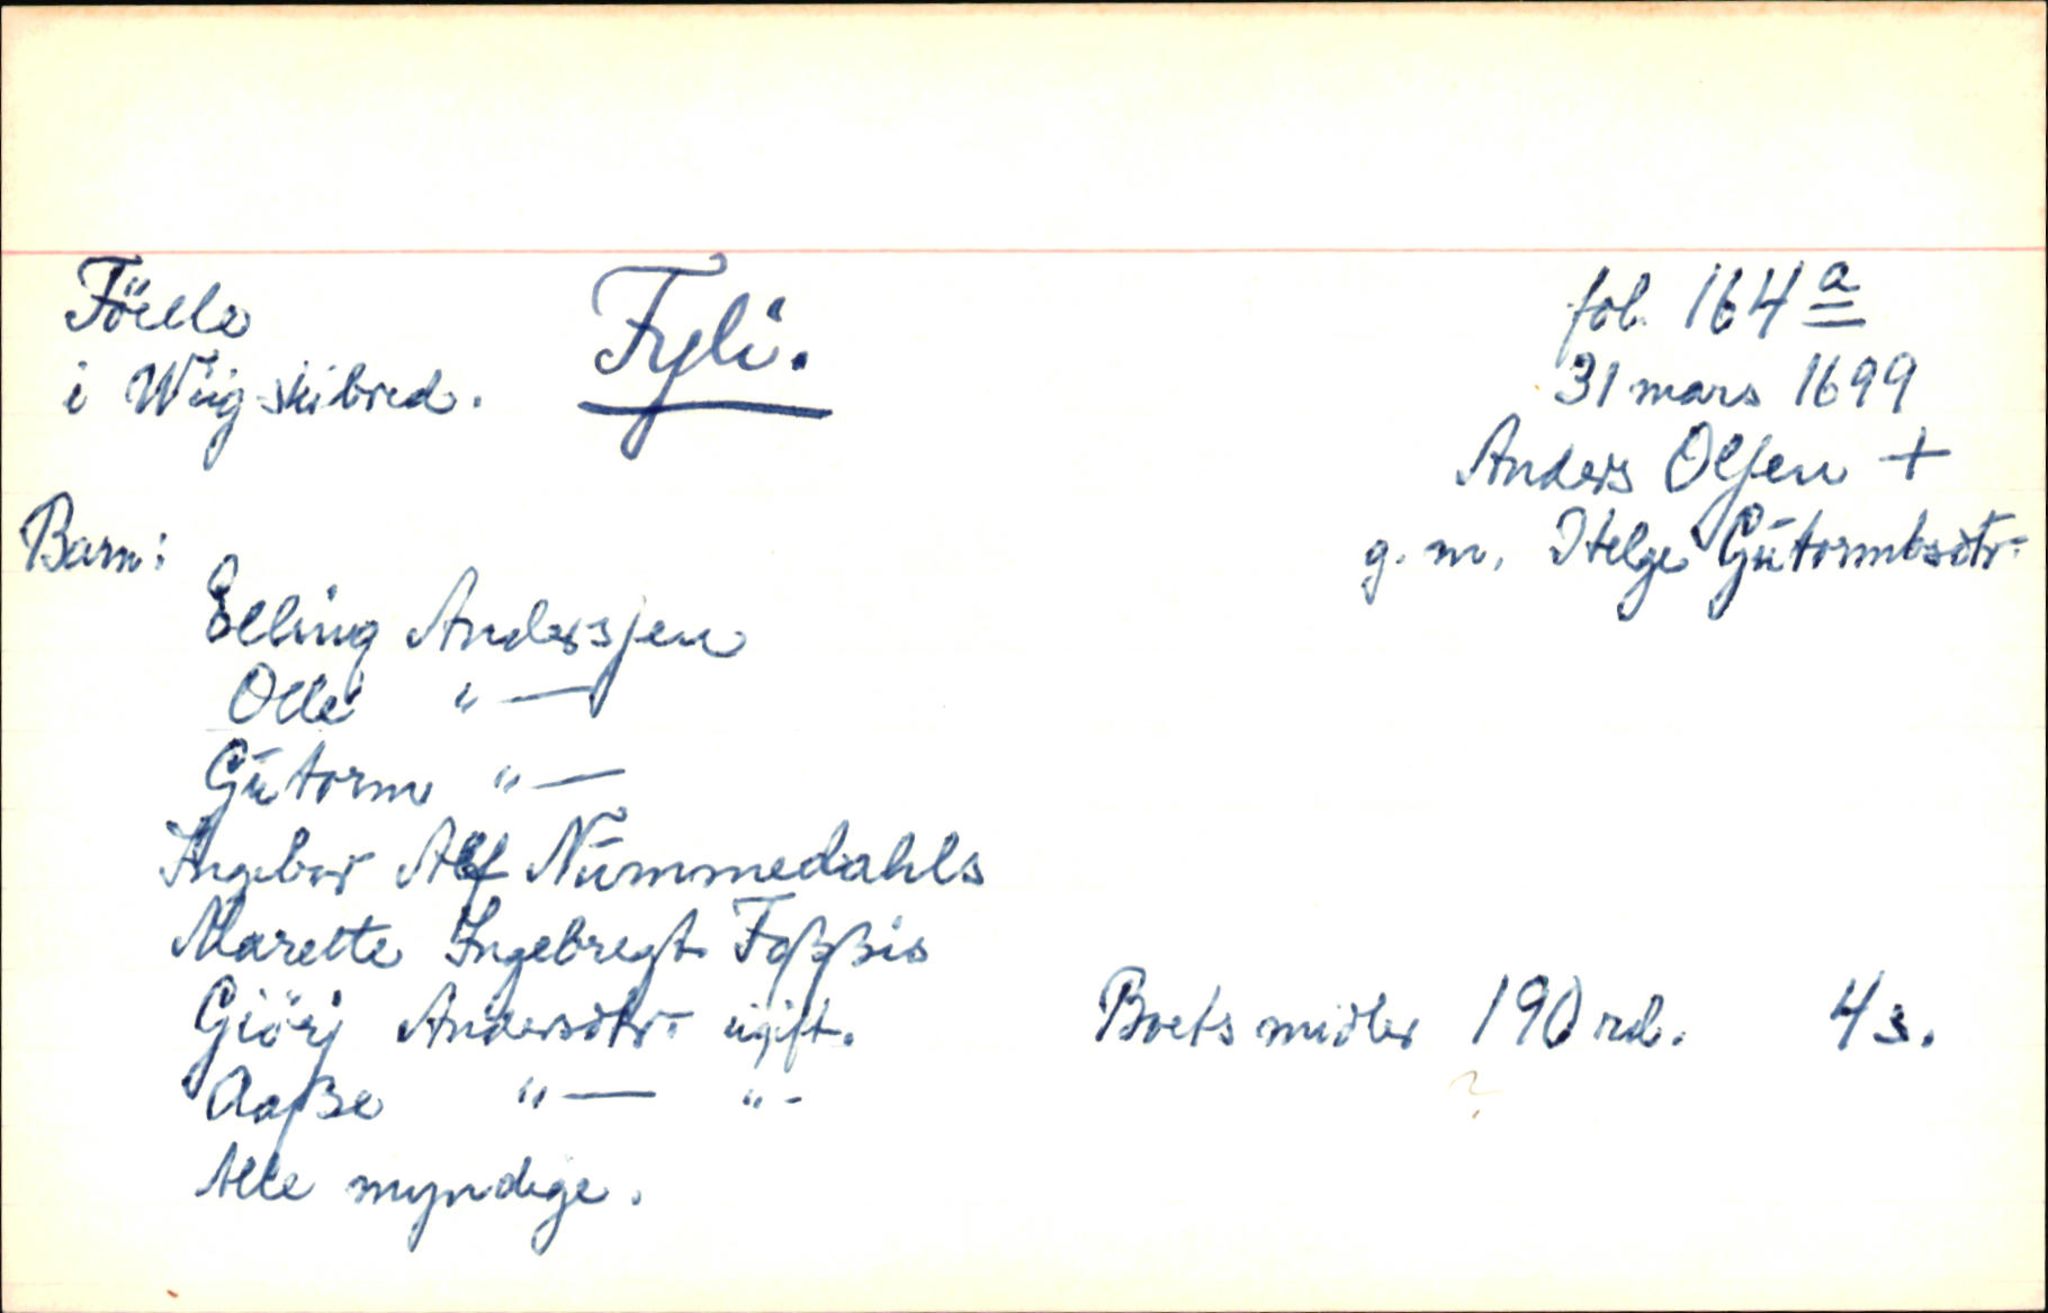 Föelle
i Wiig skibred.
Fyli.
fol. 164 a
31 mars 1699
Anders Olsen +
g. m. Helge Gutormbsdtr.
Barn:
Elling Anderssen
Olle " —
Gutorm " —
Ingebor Alf Nummedahls
Marette Ingebregt Foßßis
Giörj Andersdtr. ugift.
Aaße " — " -
Alle myndige.
Boets midler 190 rd. 4 s.
?